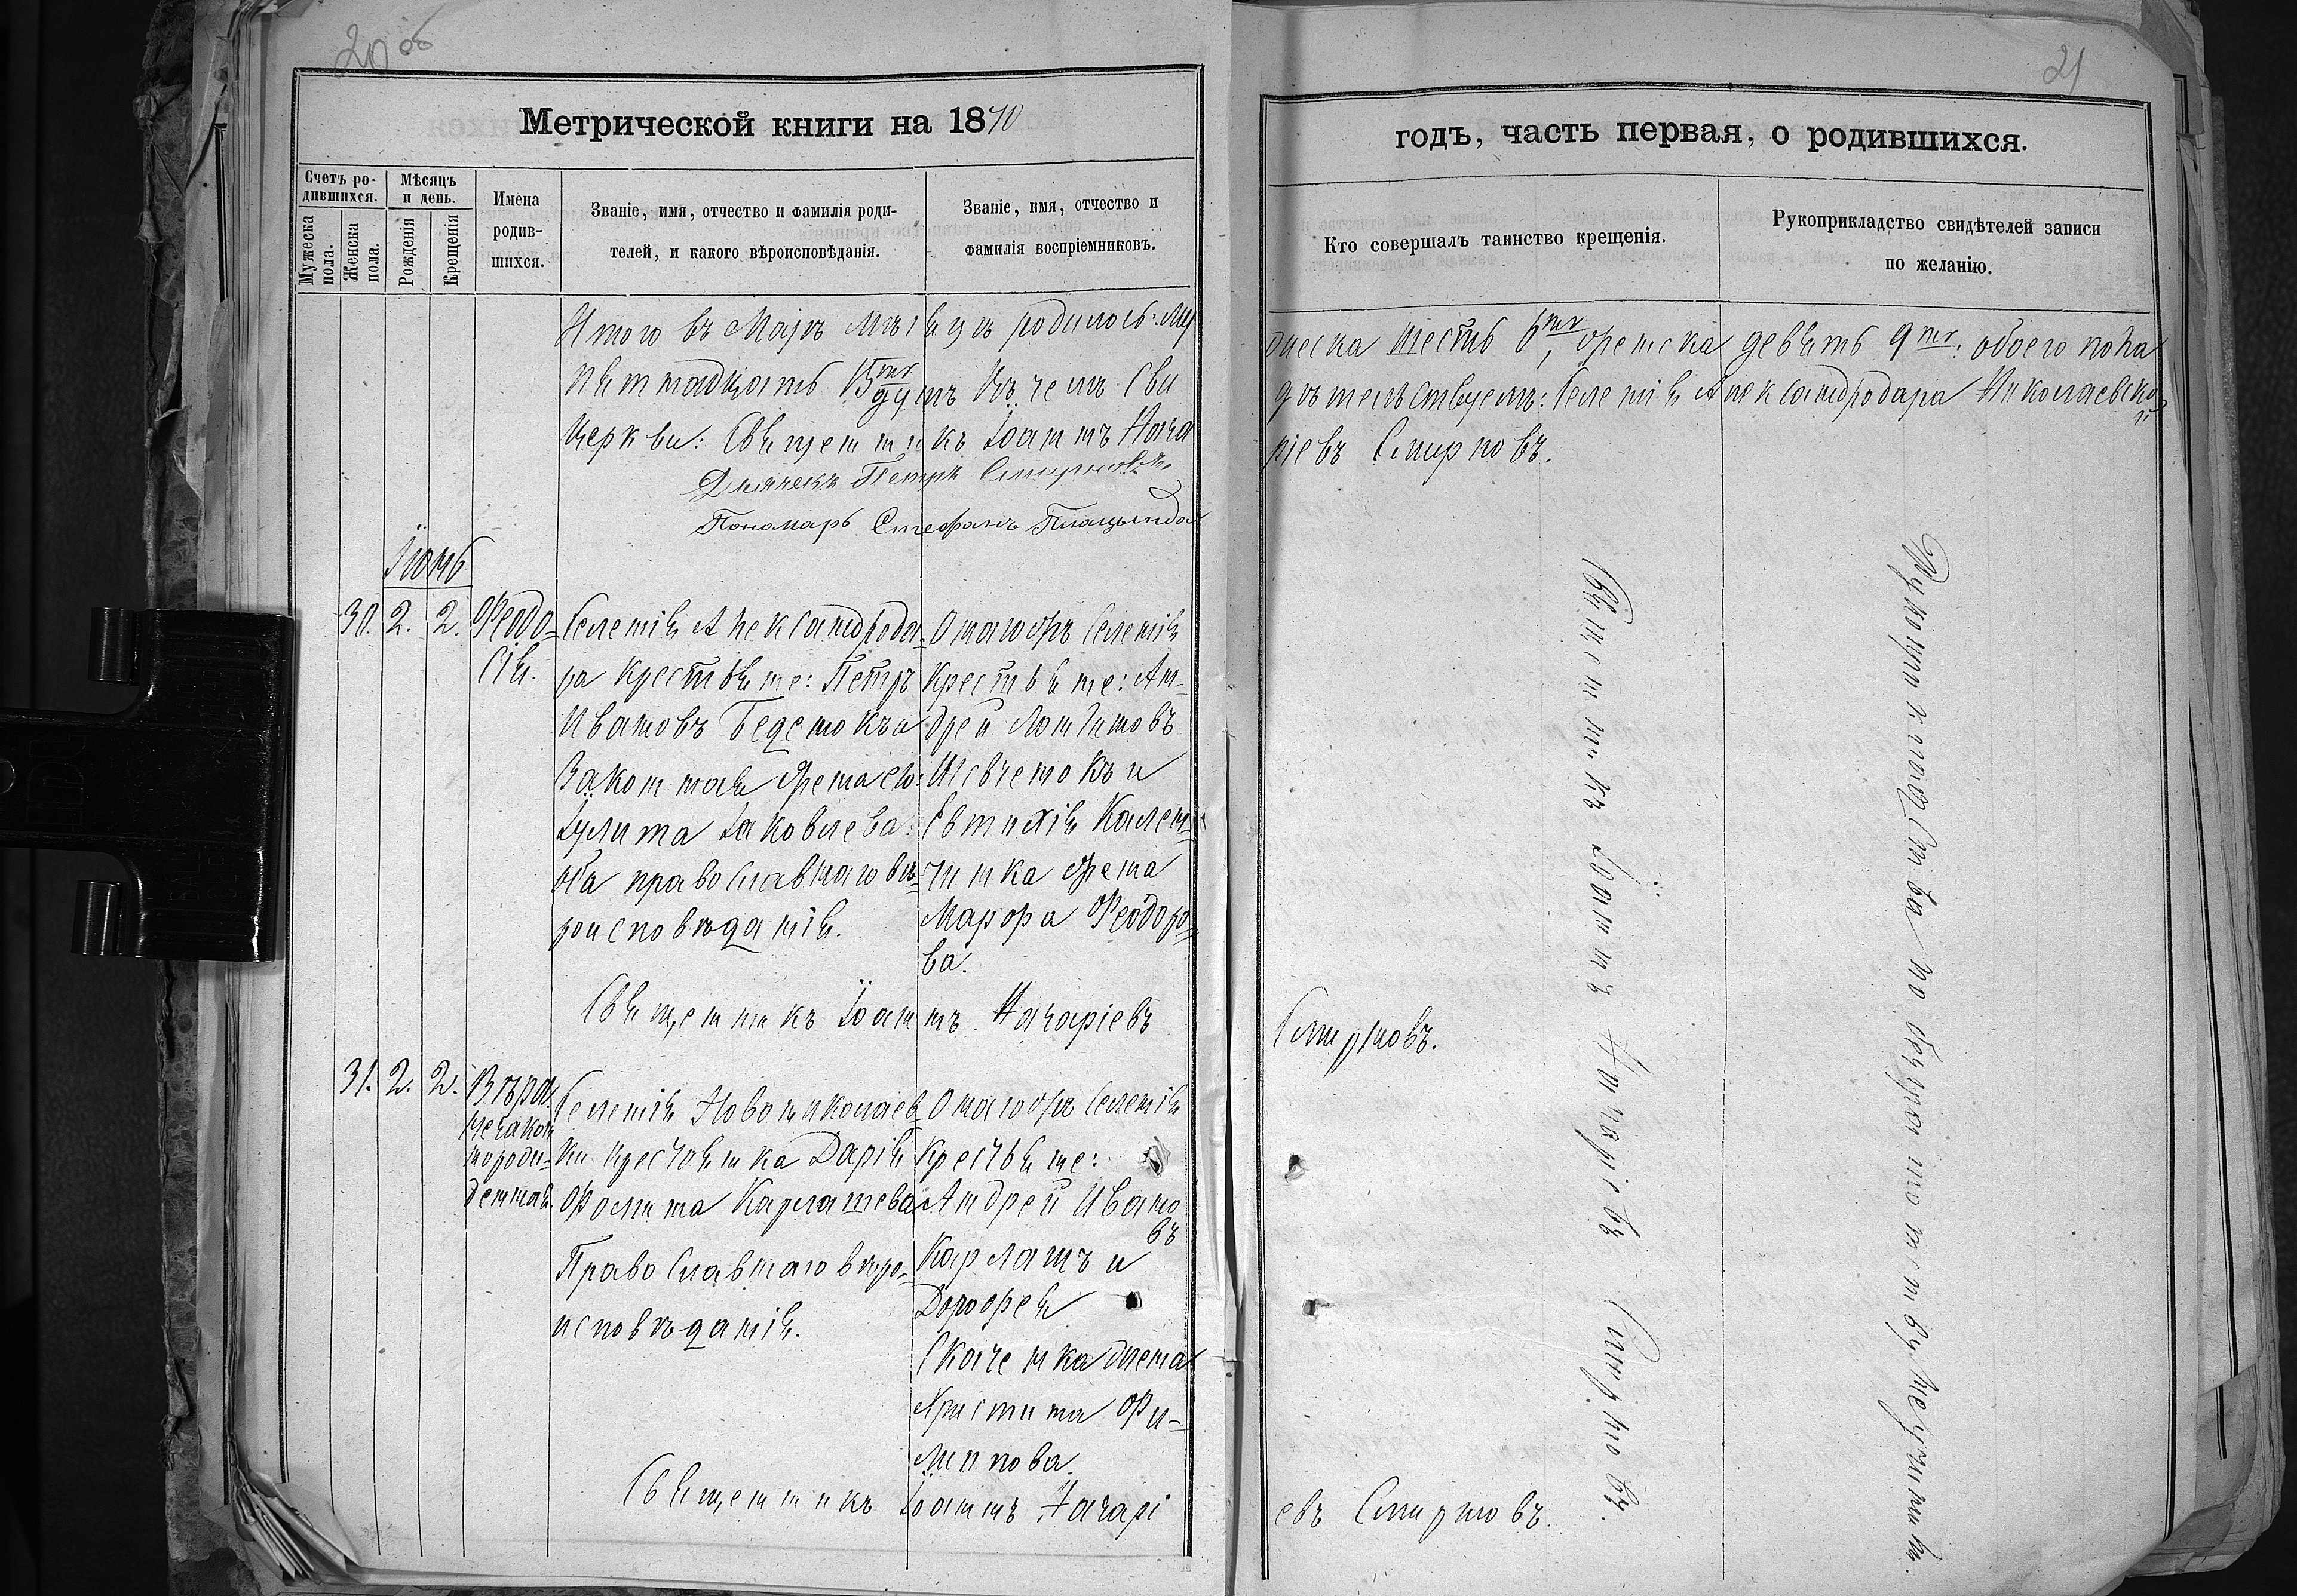 20 об
Метрической книги на 1870
Счетъ ро-
дившихся.
Мѣсяцъ
и день.
Мужеска
пола.
Женска
пола.
Рожденія
Крещенія
Имена
родив-
шихся.
Званіе, имя, отчество и фамилія роди-
телей, и какого вѣроисповѣданія.
Званіе, имя, отчество и
фамилія воспріемниковъ.
Итого въ Маѣ мѣсяцѣ родилось: му
пятнадцать 15 душъ Въ чемъ Сви
Церкви: Священникъ Іоаннъ Наза
Дьячекъ Петръ Смирновъ
Пономарь Стефанъ Плацында
Іюнь
30. 2. 2.
Феодо-
сія.
Селенія Александрода-
ра крестьяне: Петръ
Ивановъ Беденокъ и
Законная жена его:
Іулита Іаковлева:
оба православнаго вѣ-
роисповѣданія.
Онагоръ Селенія
крестьяне: Ан-
дрей Лонгиновъ
Шевченокъ и
Евтихія Кален-
чинка жена
Марфа Феодоро-
ва.
Священникъ Іоаннъ Назаріевъ
31. 2. 2.
Вѣра
незакон
норож-
денная.
Селенія Новониколаев-
ки крестьянка Дарія
Фомина Карлашева
Православнаго вѣро-
исповѣданія.
Селенія
крестьяне:
Андрей Ивано
въ
Карлашъ и
Дорофея
Скаченка жена
Христина Фи-
липпова.
Священникъ Іоаннъ Назарі
21
годъ, часть первая, о родившихся.
Кто совершалъ таинство крещенія.
Рукоприкладство свидѣтелей записи
по желанію.
жеска шесть 6ть, женска девять 9ть: обоего пола
дѣтельствуемъ: Селенія Александродара Николаевской
ріевъ Смирновъ.
Смирновъ.
евъ Смирновъ.
Священникъ Іоаннъ Назаріевъ Смирновъ.
Рукоприкладства по